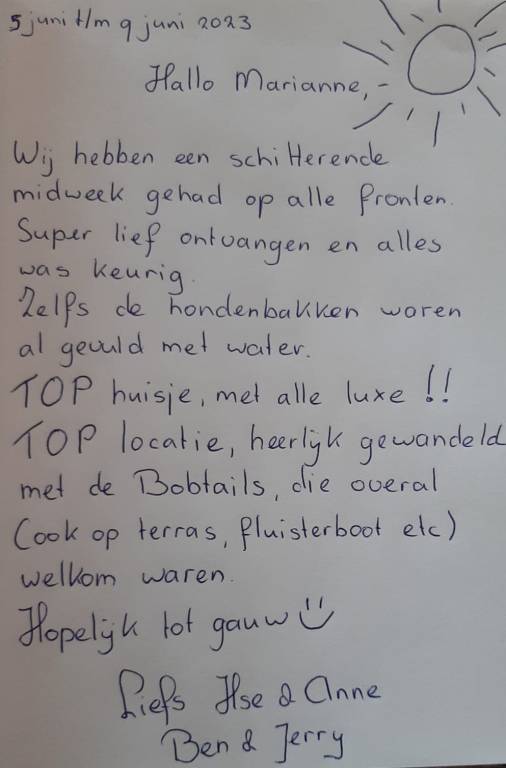 5 juni t/m 9 juni 2023
Hallo Marianne,
Wij hebben een schitterende
midweek gehad op alle fronten.
Super lief ontvangen en alles
was keurig.
Zelfs de hondenbakken waren
al gevuld met water.
TOP huisje, met alle luxe!!
TOP locatie, heerlijk gewandeld
met de Bobtails, die overal
(ook op terras, fluisterboot etc)
welkom waren.
Hopelijk tot gauw
Liefs Ilse & Anne
Ben & Jerry